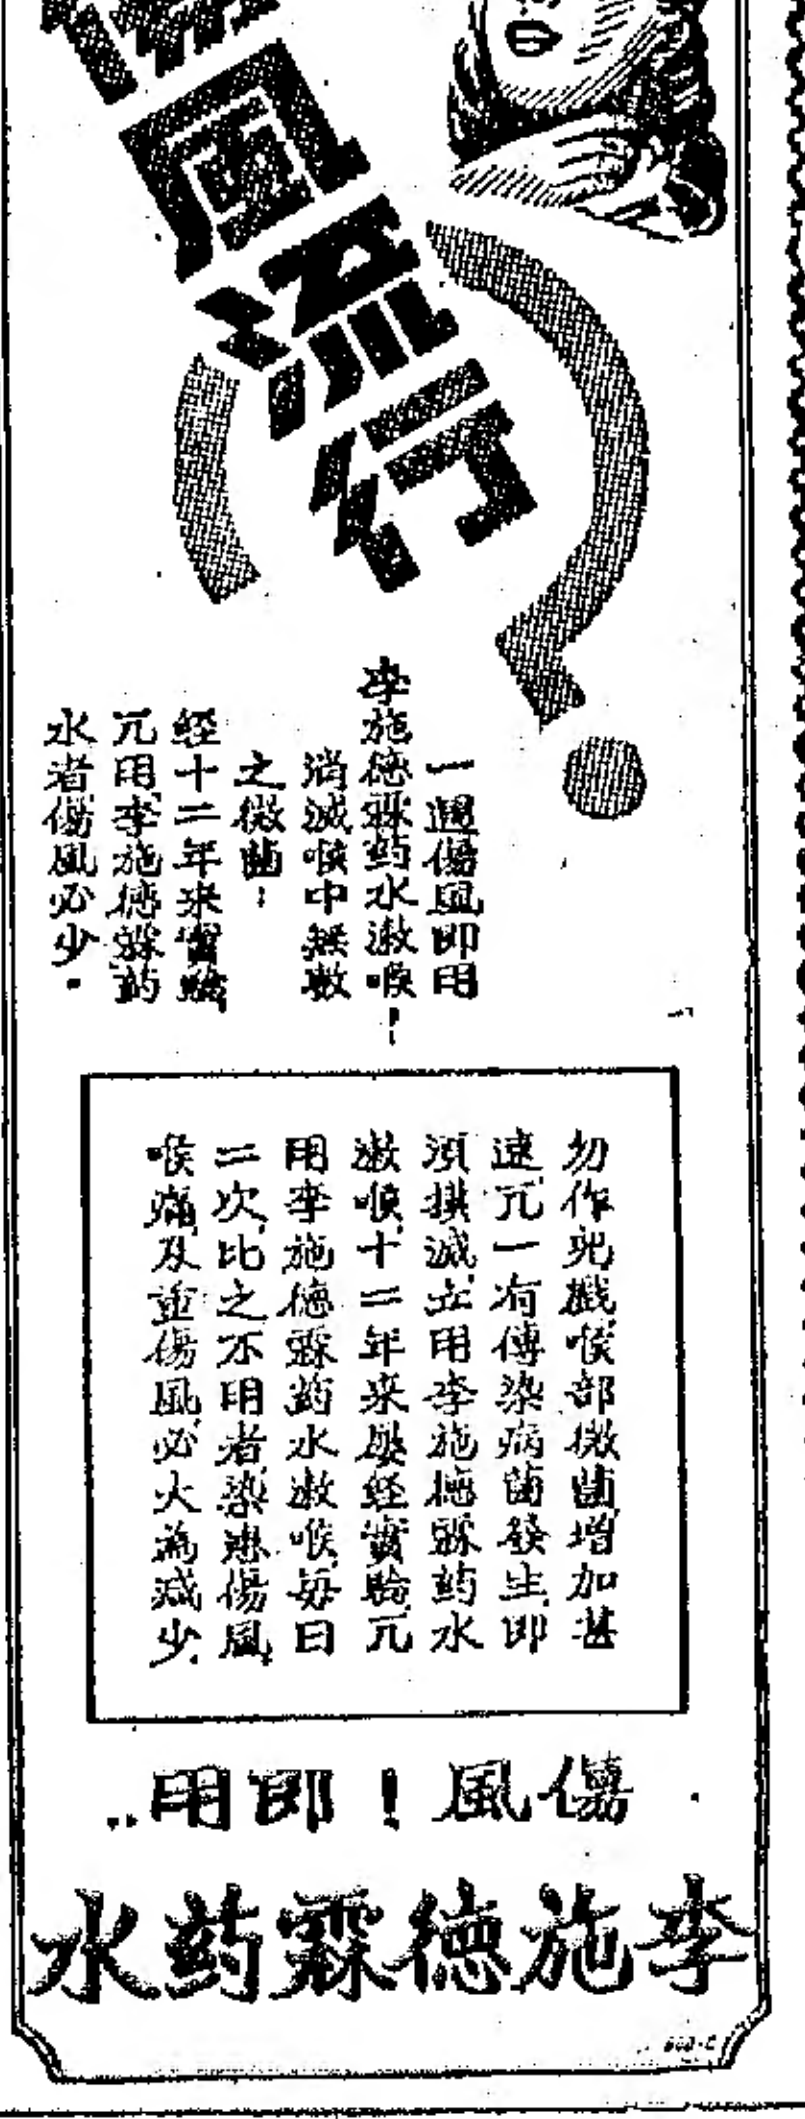 傷風流行
一遇傷風即用
李施德霖药水漱喉！
消滅喉中無數
之微菌！
經十二年來實驗，
凡用李施德霖药
水者，傷風必少。
勿作兒戲，喉部微菌，增加甚
速，凡一有傳染病菌發生，即
須撲滅，立用李施德霖药水
漱喉，十二年来屡经實驗，凡
用李施德霖药水漱喉，每日
二次，比之不用者，染患傷風，
喉痛，及重傷風，必大為减少。
傷風！即用..
李施德霖药水